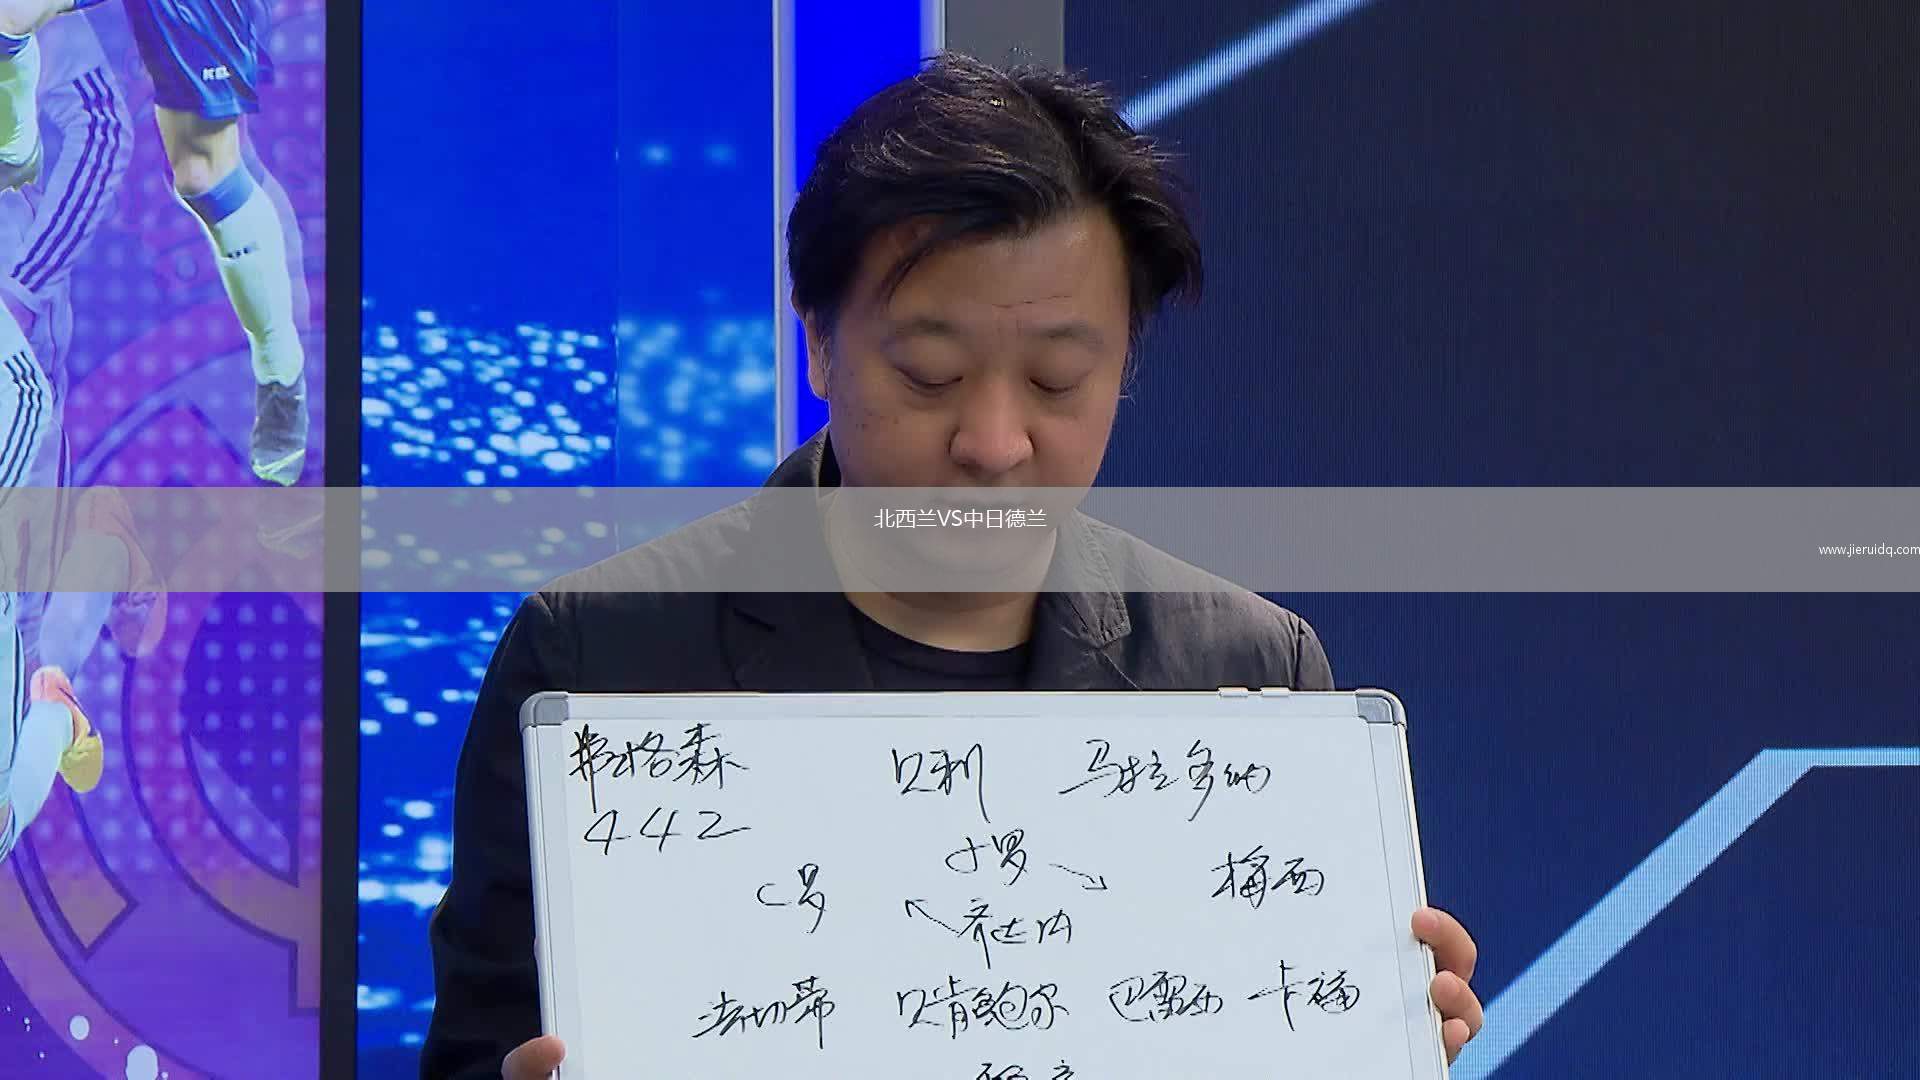 北西兰VS中日德兰
www.jieruidq.com
弗格森 贝利 马拉多纳
442
小罗
C罗 梅西
齐达内
法切蒂 贝肯鲍尔 巴雷西 卡福